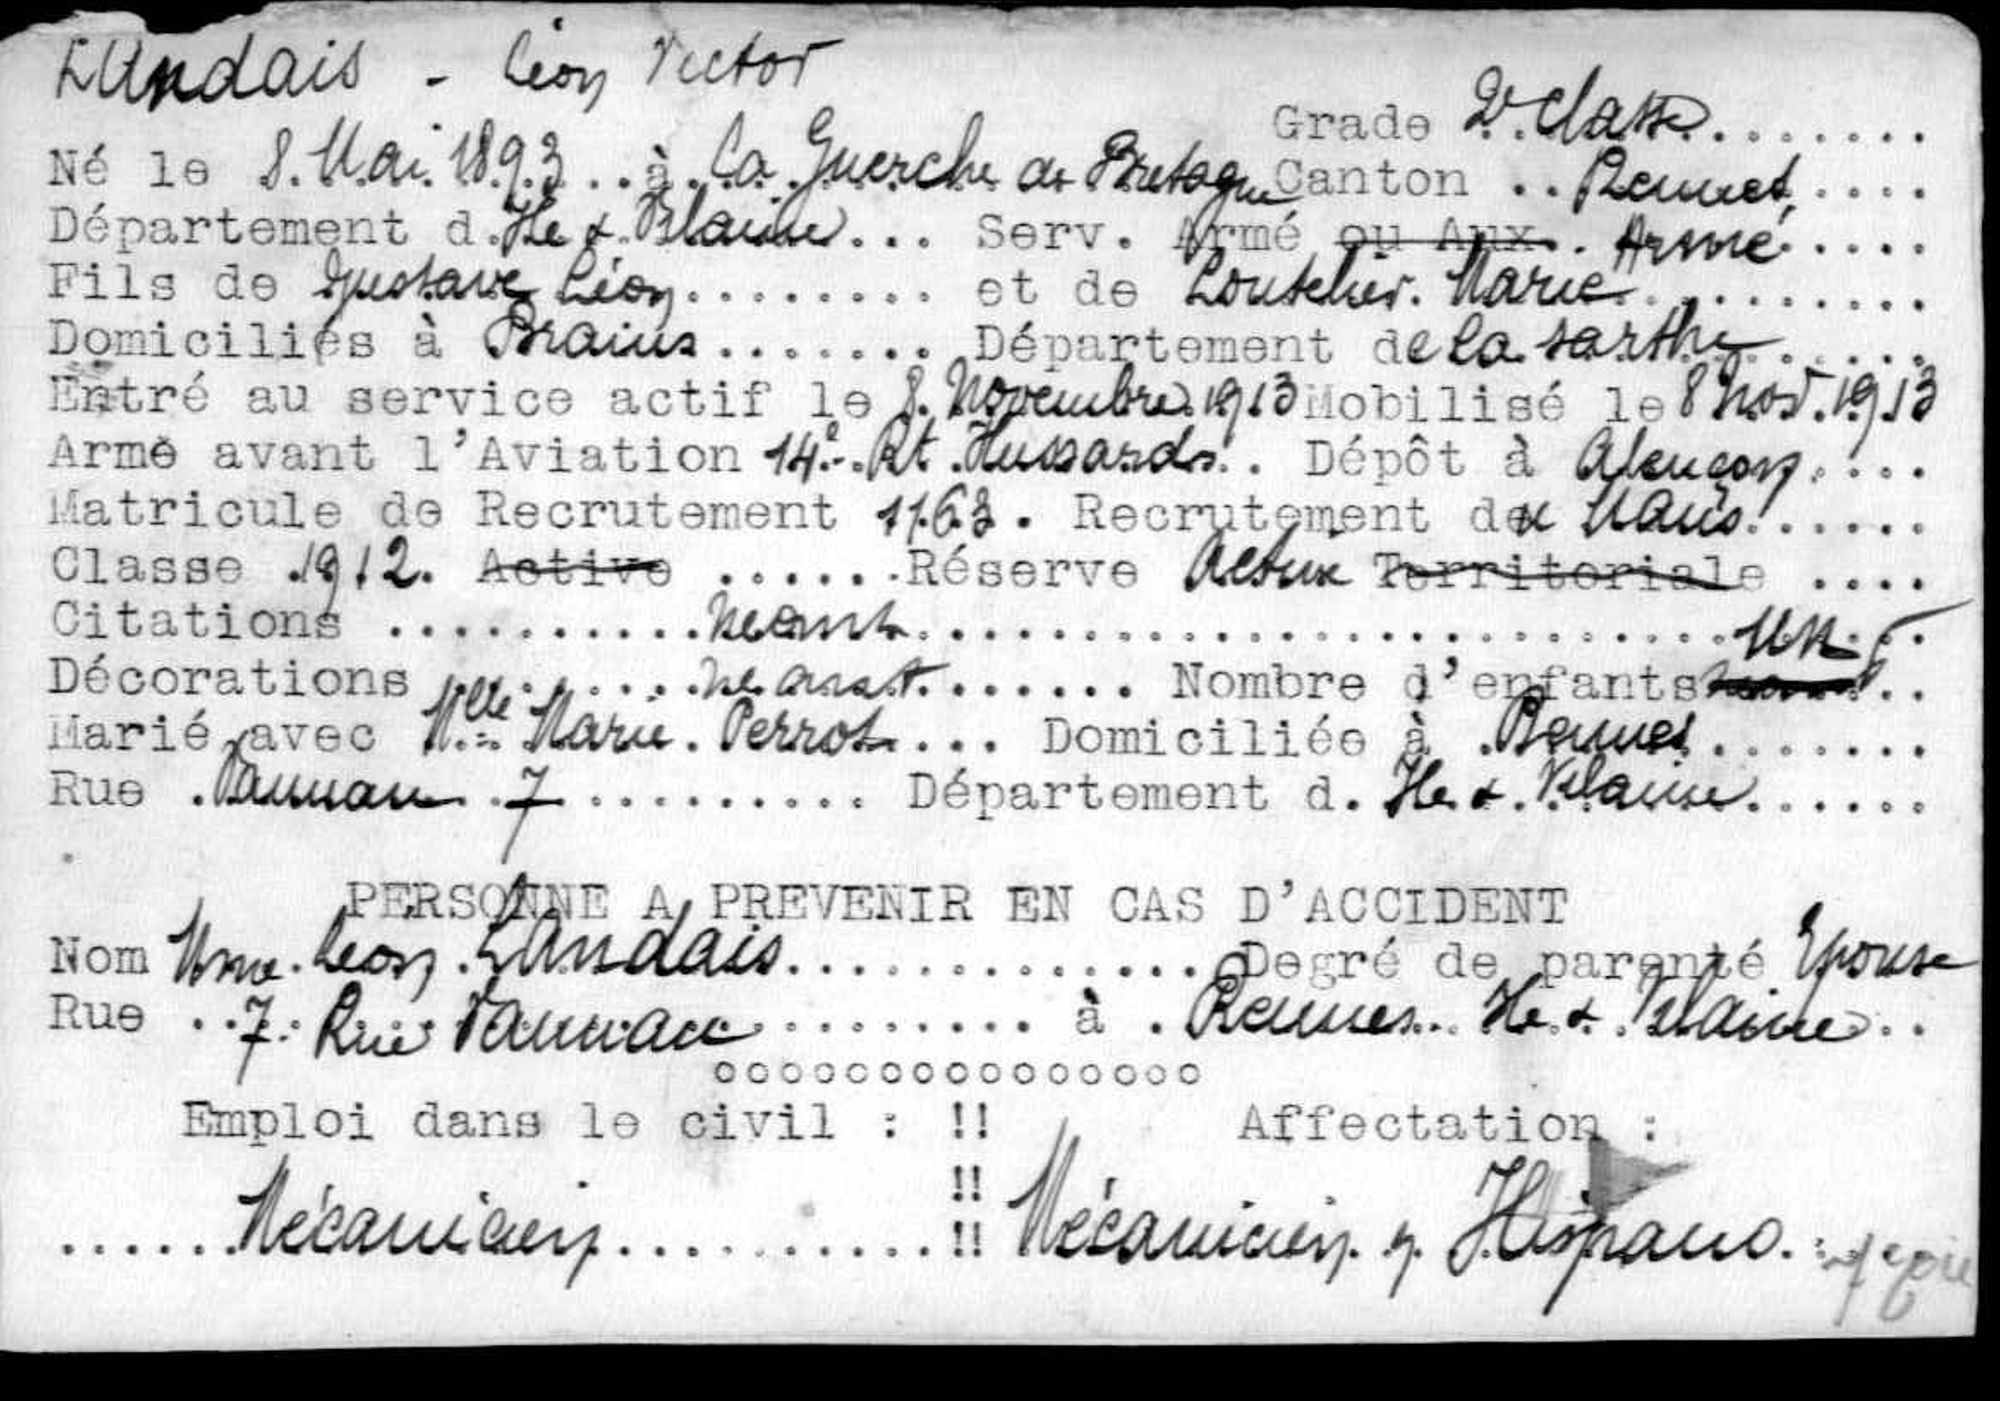 Landais - Léon Victor
Grade 2e. Classe........
Né le 8. Mai 1893..à. La Guerche de Bretagne Canton .. Rennes....
Département d.Ille & Vilaine... Serv. Armé ~~ou Aux.~~. Armé.....
Fils de Gustave Léon......... et de Loutelier. Marie..........
Domiciliés à Brains....... Département de la Sarthe......
Entré au service actif le 8. Novembre.1913 Mobilisé le 8 Nov. 1913
Arme avant l'Aviation 14e. Rt. Hussards.. Dépôt à Alençon....
Matricule de Recrutement 1163. Recrutement du Mans......
Classe 1912. ~~Active~~ ......Réserve Active ~~Territoriale~~ ....
Citations ..........Néant.........................Un...
Décorations ........néant....... Nombre d'enfants ~~néant~~..
Marié avec Mlle Marie. Perrot.... Domiciliée à .Rennes.......
Rue .Vanneau. 7.......... Département d. Ille & Vilaine......
PERSONNE A PREVENIR EN CAS D'ACCIDENT
Nom Mme. Léon. Landais............. Degré de parenté Epouse
Rue ..7. Rue Vanneau......... à . Rennes.. Ille & Vilaine..
ooooooooooooooo
Emploi dans le civil : !! Affectation :
!!
......Mécanicien...........!! Mécanicien Hispano.